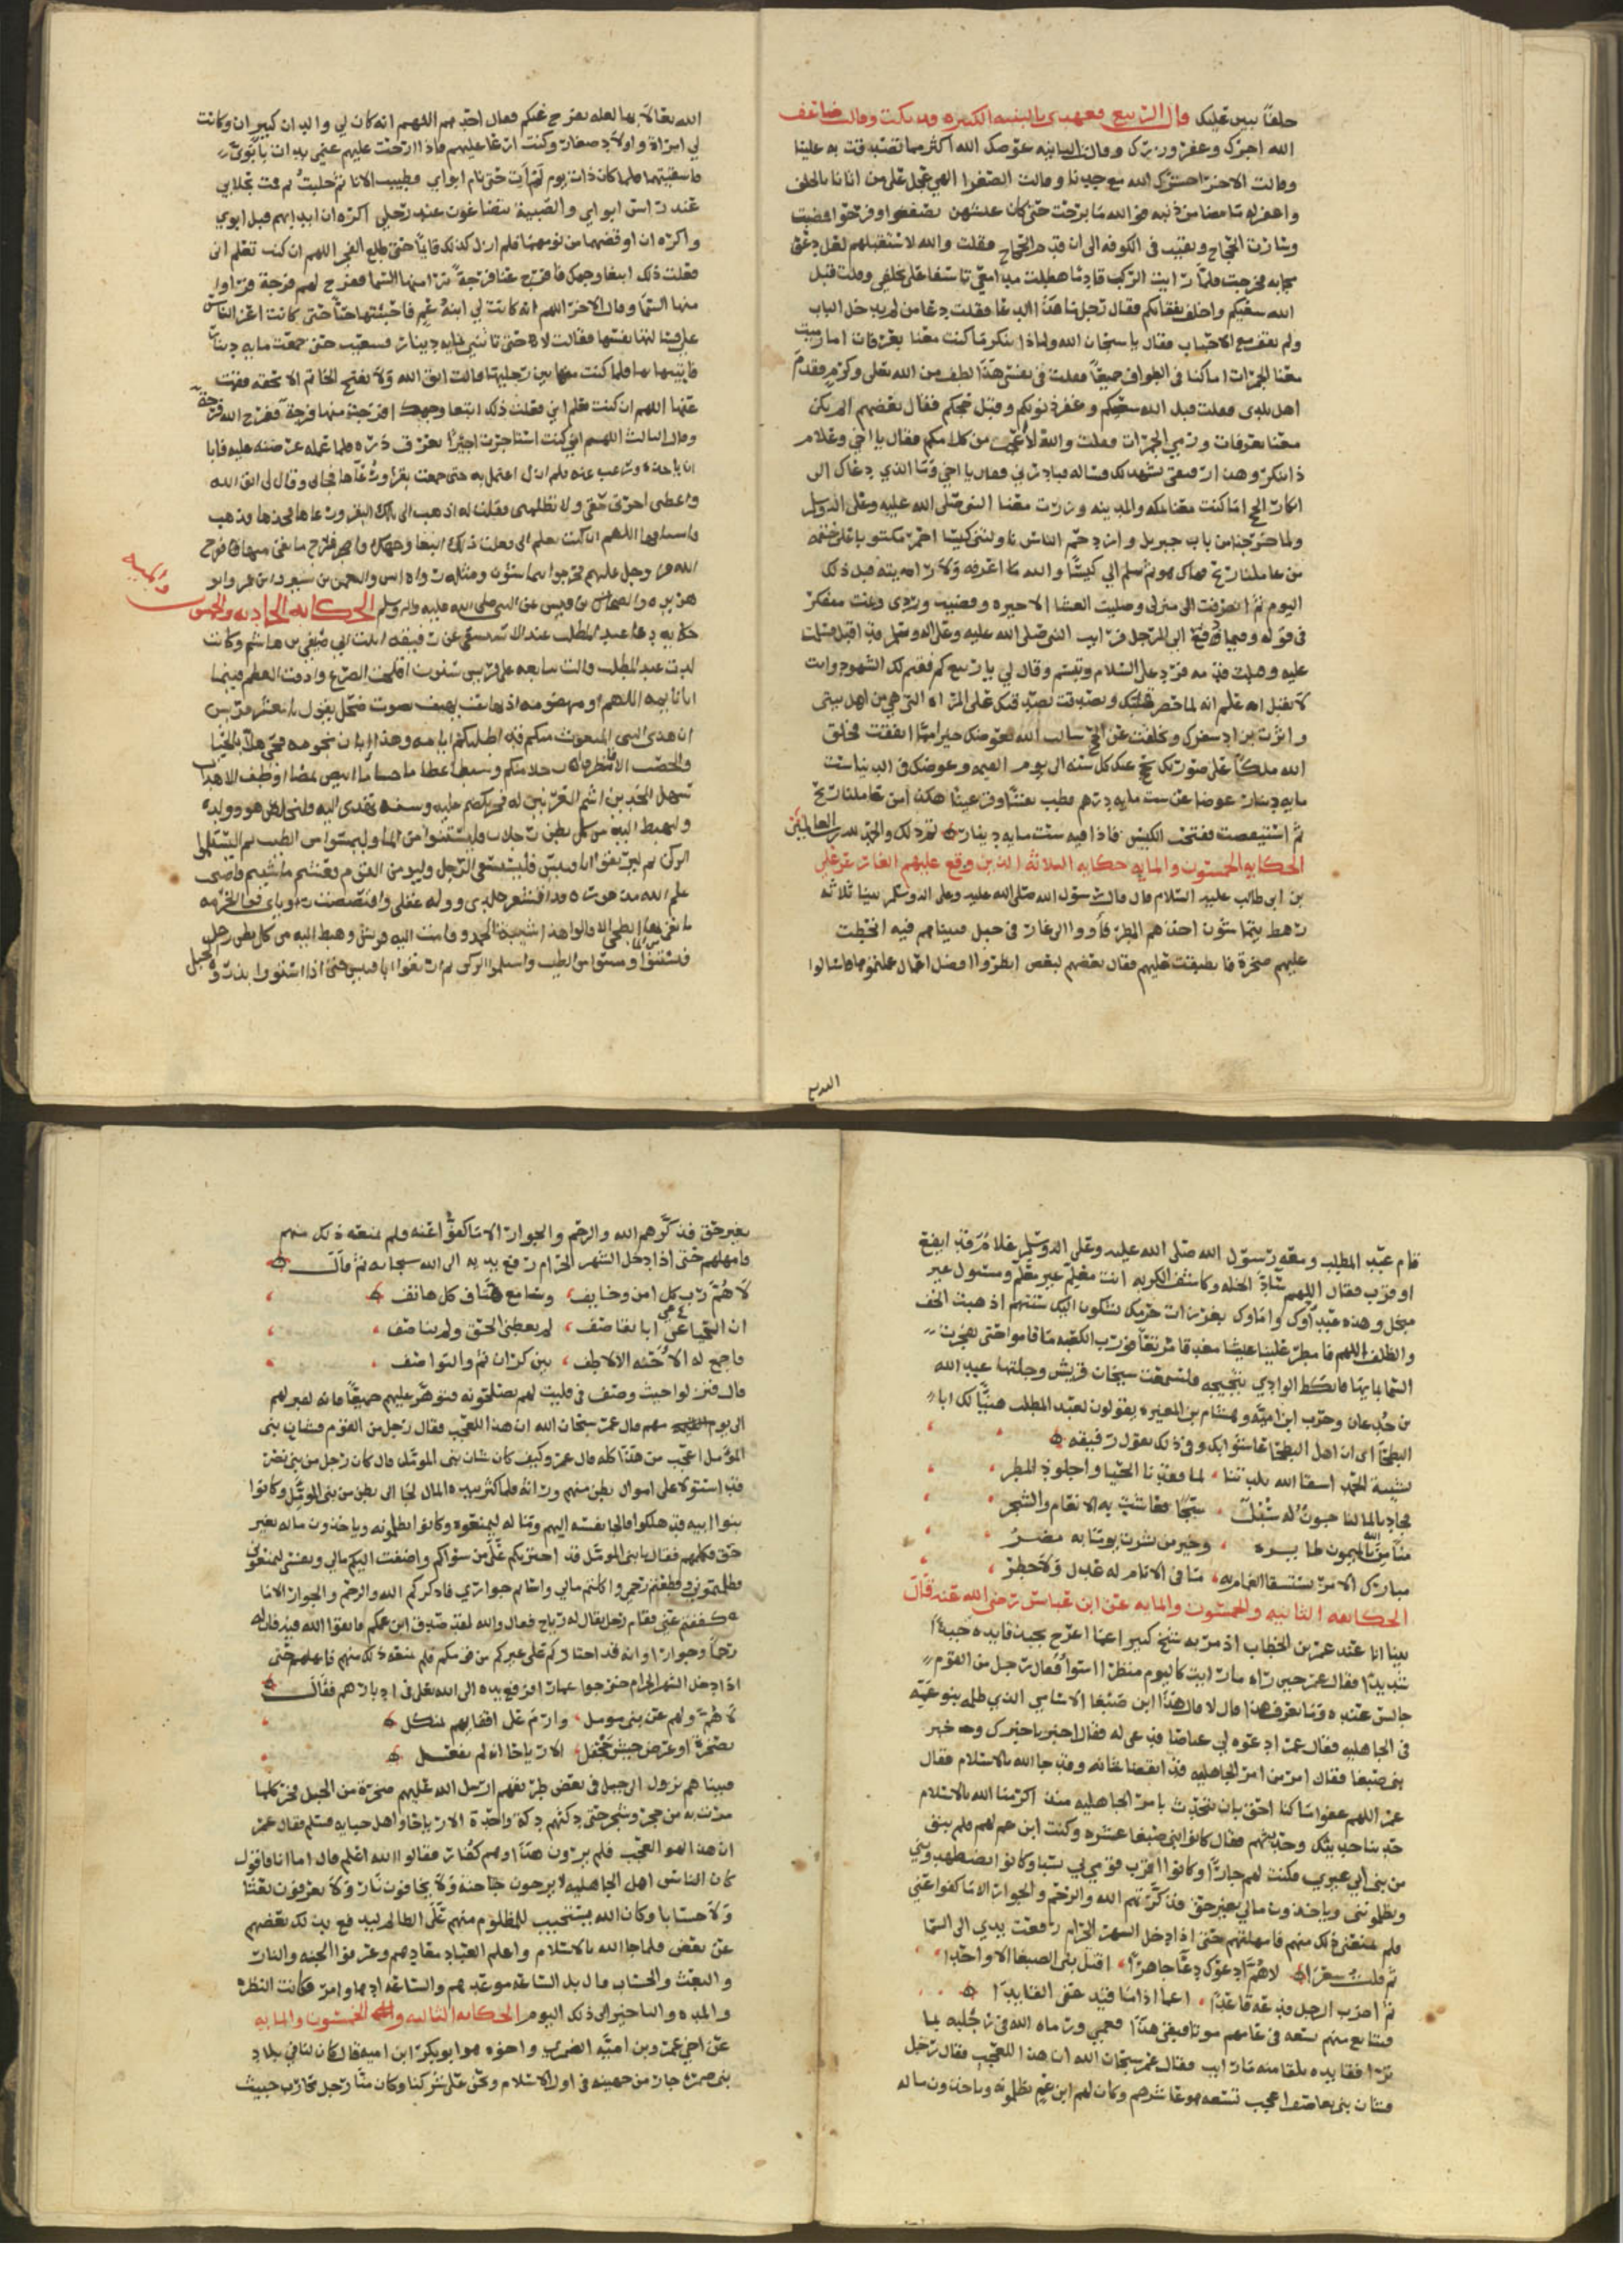 خلقا بين عليك قال الربيع فعهدى بالبنيه الكبره وقد بكت وقالت ضاعف
الله اجرك وغفر وزرك وقالت الثانيه عوضك الله اكثر مما تصدقت به علينا
وقالت الاخرى حشرك الله مع جدنا وقالت الصغرا الهي عجل على من اثانا بالخلف
واغفر له ما مضا من ذنبه فو الله ما برحت حتى كان
وسارت الحجاج وبقيت في الكوفه الى ان قدم الحجاج فقلت والله لا ستقبلهم لعل دعوة
مجابه فخرجت فلما رايت الركب قادما هطلت مدامعي تاسفا على تخلفى وقلت قبل
الله سعيكم واخلف نفقاتكم فقال رجل ما هذا الدعا فقلت دعا من لم يدخل الباب
ولم يقف مع الاحباب فقال يا سبحان الله ولماذا تنكر ما كنت معنا بعرفات اما رميت
معنا الجمرات اما كنا في الطواف جميعا فقلت في نفسى هذا لطف من الله تعلى وكرم فقدم
اهل بلدى فقلت قبل الله سعيكم وغفر ذنوبكم وقبل حجكم فقال بعضهم الم تكن
معنا بعرفات ورمي الجمرات فقلت والله لاعجب من كلامكم فقال يا اخي وعلام
ذا تنكر وهذا رفيقى يشهد لك فساله فبادرني فقال يا اخي وما الذي دعاك الى
انكار الحج اما كنت معنا بمكه والمدينه وزرت معنا النبى صلى الله عليه وعلى اله وسلم
ولما خرجنا من باب جبريل وازدحم الناس ناولتنى كيسا احمر مكتوب على ختمه
من عاملنا ربح فهاك هو ثم سلم الي كيسا والله ما اعرفه ولا رايته قبل ذلك
اليوم ثم انصرفت الى منزلى وصليت العشا الاخيره وقضيت وردى وبت مفكر
فى قوله وفيما دفع الى الرجل فرايت النبى صلى الله عليه وعلى اله وسلم قد اقبل فسلمت
عليه وقبلت قدمه فرد على السلام وتبسم وقال لي يا ربيع كم نقيم لك الشهود وانت
لا تقبل انه علم انه لما حضر قلبك وتصدقت بصدقتك على المراه التى هي من اهل بيتى
واثرت بزاد سفرك وتخلفت عن الحج سالت الله يعوضك خيرا مما انفقت فخلق
الله ملكا على صورتك يحج عنك كل سنه الى يوم القيمه وعوضك في الدنيا ست
مايه دينار عوضا عن ست مايه درهم فطب نفسا وقر عينا هكذا من عاملنا ربح
ثم استيقضت ففتحت الكيس فاذا فيه ست مايه دينار والحمد لله رب العالمين
الحكايه الخمسون والمايه حكايه الثلاثه الذين وقع عليهم الغار عن على
بن ابى طالب عليه السلام قال قال رسول الله صلى الله عليه وعلى اله وسلم بينا ثلاثه
رهط يتماشون اخذهم المطر فأووا الى غار في جبل فبينا هم فيه انحطت
عليهم صخرة فاطبقت عليهم فقال بعضهم لبعض انظروا افضل اعمال عملتموها فاسالوا
الله تعالا بها لعله يفرج عنكم فقال احدهم اللهم انه كان لي والدان كبيران وكانت
لي امراة واولاد صغار وكنت ارعا عليهم فاذا ارحت عليهم غنمى بدات بابوي
فاسقيتهما فلما كان ذات يوم لم آت حتى نام ابواي فطيبت الانا ثم حلبت ثم قمت بحلابي
عند راس ابواي والصبية يتضاغون عند رجلي اكره ان ابدا بهم قبل ابوي
واكره ان اوقضهما من نومهما فلم ازل كذلك قايما حتى طلع الفجر اللهم ان كنت تعلم انى
فعلت ذلك ابتغا وجهك فافرج عنا فرجة نرا منها السما ففرج لهم فرجة فراوا
منها السما وقال الاخر اللهم انه كانت لي ابنة عم فاحببتها حبا حتى كانت اعز الناس
علي فسالتها نفسها فقالت لا حتى تاتيني بمايه دينار فسعيت حتى جمعت مايه دينار
فاتيتها بها فلما كنت بين رجليها قالت اتق الله ولا تفتح الخاتم الا بحقه فقمت
عنها اللهم ان كنت تعلم اني فعلت ذلك ابتغا وجهك افرج منها فرجة ففرج الله فرجة
وقال الثالث اللهم اني كنت استاجرت اجيرا بفرق ذره فلما عمله عرضته عليه فابا
ان ياخذه ورغب عنه فلم ازل اعتمل به حتى جمعت بقرا ورعاها فجاني وقال لي اتق الله
واعطنى اجرى حقى ولا تظلمنى فقلت له اذهب الى تلك البقر ورعاها فخذها فذهب
فاستاقها اللهم ان كنت تعلم انى فعلت ذلك ابتغا وجهك فافرج ما بقى منها ففرج
الله عز وجل عليهم فخرجوا يتماشون ومثله رواه انس والنعمن بن بشير وابن عمر وابو
هريره عن النبي صلى الله عليه واله وسلم الحكايه الحاديه والخمسون
والمايه
حكايه دعا عبد المطلب عند الاستسقى عن رقيقه ابنت ابي صيفي بن هاشم وكانت
لدت عبد المطلب قالت تتابعت على قريش سنون اقحلت الضرع وادقت العظم فبينما
انا نايمه اللهم او مهمومه اذ هاتف يهتف بصوت صحل يقول يا معشر قريش
ان هذا النبى المبعوث منكم قد اظلتكم ايامه وهذا ابان نجومه فحي هلا بالحيا
والخصب الا فانظروا رجلا منكم وسيطا عظاما جساما ابيض بضا اوطف الاهداب
سهل الخدين اشم العرنين له فخر يكضم عليه وسنه تهدى اليه فليخلص هو وولده
وليهبط اليه من كل بطن رجلا فليشنوا من الما وليمسوا من الطيب ثم ليستلموا
الركن ثم ليرتقوا ابا قبيس فليستسقى الرجل وليومن القوم فغثتم ما شيتم فاصبحت
علم الله مذعوره قد اقشعر جلدى ووله عقلى واقتصصت روياى فو الحرمه
ما بقى بها ابطحى الا قالوا هذا شيبة الحمد وقامت اليه قريش وهبط اليه من كل بطن رجل
فشنوا ومسوا من الطيب واستلموا الركن ثم ارتقوا ابا قبيس حتى اذا استووا بذروة الجبل
قام عبد المطلب ومعه رسول الله صلى الله عليه وعلى اله وسلم غلام قد ايفع
او قرب فقال اللهم ساد الخله وكاشف الكربه انت معلم غير معلم ومسول غير
مبخل وهذه عبداوك واماوك بعذرات حرمك يشكون اليك سنتهم اذهبت الخف
والظلف اللهم فامطر علينا غيثا مغدقا مريعا فورب الكعبه ما قاموا حتى تفجرت
السما بمايها فاكتظ الوادي بثجيجه فلسمعت سيخان قريش وجلتها عبد الله
بن جدعان وحرب ابن اميه وهشام بن المغيره يقولون لعبد المطلب هنيا لك ابا
البطحا اى ان اهل البطحا عاشوا بك وفي ذلك تقول رقيقه
بشيبة الحمد اسقا الله بلدتنا لما فقدنا الحيا واجلوذ المطر
فجاد بالما لنا جون له سبل سحا فعاشت به الانعام والشجر
منا من الله بالميمون طايره وخير من بشرت يوما به مضر
مبارك الامر يستسقا الغمام به ما في الانام له عدل ولا خطر
الحكايه الثانيه والخمسون والمايه عن ابن عباس رضى الله عنه قال
بينا انا عند عمر بن الخطاب اذ مر به شيخ كبير اعما اعرج يجبد قايده جبدا
شديدا فقال عمر حين راه ما رايت كاليوم منظرا اسوأ فقال رجل من القوم
جالس عنده وما تعرف هذا قال لا قال هذا ابن ضبغا الاسلمي الذي ظلمه بنو عمه
فى الجاهليه فقال عمر ادعوه لي عياضا فدعى له فقال اخبرنا خبرك وخبر
بنى ضبغا فقال امر من امر الجاهليه قد انقضا شانه وقد جا الله بالاسلام فقال
عمر اللهم عفوا ما كنا احق بان نتحدث بامر الجاهليه منذ اكرمنا الله بالاسلام
حدثنا حديثك وحديثهم فقال كانوا بنى ضبغا عشره وكنت ابن عم لهم فلم يبق
من بنى ابي غيري فكنت لهم جارا وكانوا اقرب قومي لي نسبا وكانوا يضطهدونني
ويظلمونني وياخذون مالي بغير حق فذكرتهم الله والرحم والجوار الا ما كفوا عني
فلم يمنعني ذلك منهم فامهلتهم حتى اذا دخل الشهر الحرام رفعت يدي الى السما
ثم قلت شعرا لاهم ادعوك دعا جاهدا اقتل بني الضبغا الا واحدا
ثم اضرب الرجل فذره قاعدا اعما اذا ما قيد عنى القايدا
فتتابع منهم تسعه في عامهم موتا وبقي هذا فعمي ورماه الله في رجليه بما
ترا فقايده يلقا منه ما رايت فقال عمر سبحان الله ان هذا للعجب فقال رجل
فشان بنى تقاصف اعجب تسعه هو عاشرهم وكان لهم ابن عم يظلمونه وياخذون ماله
بغير حق فذكرهم الله والرحم والجوار الا ما كفوا عنه فلم يمنعه ذلك منهم
فامهلهم حتى اذا دخل الشهر الحرام رفع يديه الى الله سبحانه ثم قال
لاهم رب كل امن وخايف وسامع هتاف كل هاتف
ان الخناعي ابا تقاصف لم يعطني الحق ولم يناصف
فاجمع له الاحبه الالاطف بين كران ثم والنواصف
قال فنزلوا حيث وصف في قليب لهم يصلحونه فتهور عليهم جميعا فانه لقبر لهم
الى يومهم قال عمر سبحان الله ان هذا للعجب فقال رجل من القوم فشان بنى
المؤمل اعجب من هذا كله قال عمر وكيف كان شان بنى المومل قال كان رجل من بنى نصر
قد استولا على اموال بطن منهم وراثة فلما كثر بيده المال لجا الى بطن من بنى المومل وكانوا
بنوا ابيه قد هلكوا فالجا نفسه اليهم وماله ليمنعوه وكانوا يظلمونه وياخذون ماله بغير
حق فكلمهم فقال يا بنى المومل قد اخترتكم على من سواكم واضفت اليكم مالي ونفسي لتمنعوني
فظلمتموني وقطعتم رحمي واكلتم مالي واساتم جواري فاذكركم الله والرحم والجوار الا ما
كففتم عني فقام رجل يقال له رياح فقال والله لقد صدق ابن عمكم فاتقوا الله فيه فان له
رحما وجوارا وانه قد اختاركم على غيركم من قومكم فلم يمنعه ذلك منهم فامهلهم حتى
اذا دخل الشهر الحرام خرجوا عمارا فرفع يده الى الله تعلى في ادبارهم فقال
لاهم ولهم عن بنى مومل وارم على اقفايهم بمنكل
بصخرة او عرض جيش جحفل الا رياحا انه لم يفعل
فبينا هم نزول الى جبل في بعض طريقهم ارسل الله عليهم صخرة من الجبل تجر كلما
مرت به من حجر وشجر حتى دكتهم دكة واحدة الا رياحا واهل خبايه فسلم فقال عمر
ان هذا لهو العجب فلم يرون هذا وهم كفار فقالوا الله اعلم قال اما انا فاقول
كان الناس اهل الجاهليه لا يرجون جنه ولا يخافون نار ولا يعرفون بعثا
ولا حسابا وكان الله يستجيب للمظلوم منهم على الظالم ليدفع بذلك بعضهم
عن بعض فلما جا الله بالاسلام واعلم العباد معادهم وعرفوا الجنه والنار
والبعث والحساب قال بل الساعه موعدهم والساعه ادها وامر فكانت النظره
والمده والتاخير الى ذلك اليوم الحكايه الثالثه والخمسون والمايه
عن اخي عمرو بن اميه الضمري واخوه هو ابو بكر ابن اميه قال كان لنا في بلاد
بنى ضمره جار من جهينه في اول الاسلام ونحن على شركنا وكان منا رجل محارب خبيث